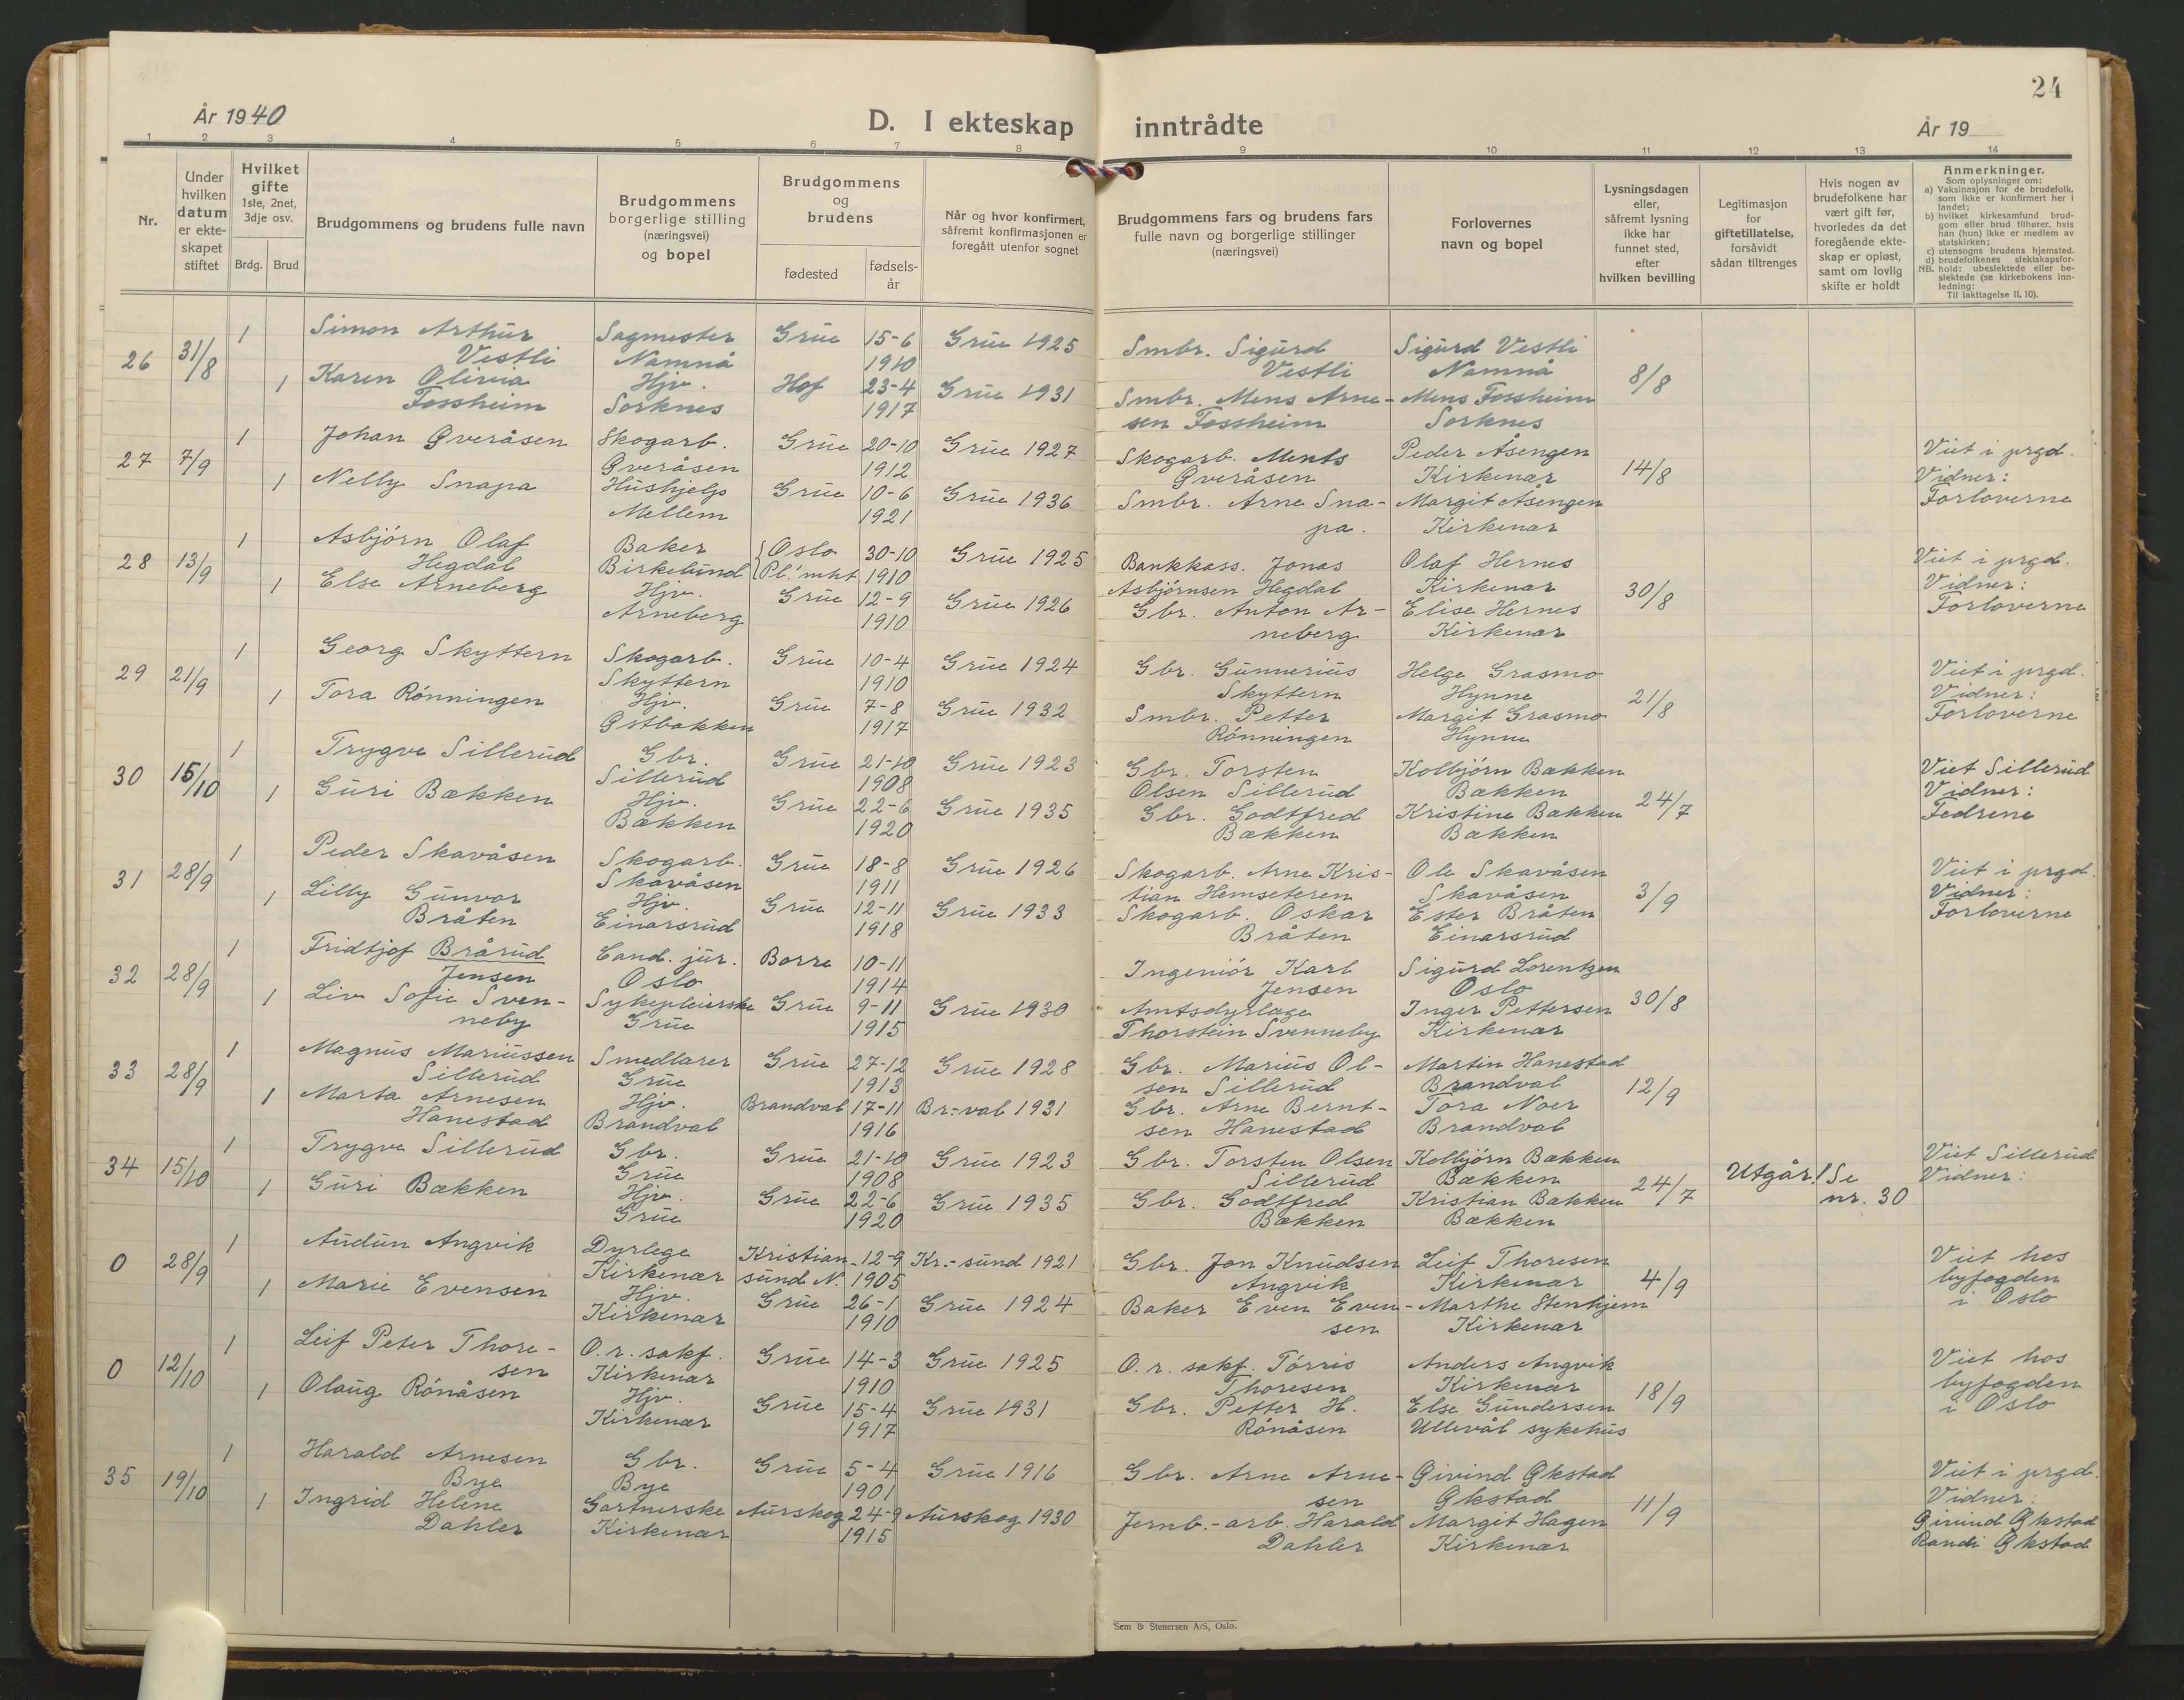 24
År 1940
D. I ekteskap inntrådte
År 19
1 2 3 4 5 6 7 8 9 10 11 12 13 14
Nr.
Under hvilken datum er ekteskapet stiftet
Hvilket gifte 1ste, 2net, 3dje osv.
Brdg. Brud
Brudgommens og brudens fulle navn
Brudgommens borgerlige stilling (næringsvei) og bopel
Brudgommens og brudens
fødested
fødselsår
Når og hvor konfirmert, såfremt konfirmasjonen er foregått utenfor sognet
Brudgommens fars og brudens fars fulle navn og borgerlige stillinger (næringsvei)
Forlovernes navn og bopel
Lysningsdagen eller, såfremt lysning ikke har funnet sted, efter hvilken bevilling
Legitimasjon for giftetillatelse, forsåvidt sådan tiltrenges
Hvis nogen av brudefolkene har vært gift før, hvorledes da det foregående ekteskap er opløst, samt om lovlig skifte er holdt
Anmerkninger.
Som oplysninger om:
a) Vaksinasjon for de brudefolk, som ikke er konfirmert her i landet;
b) hvilket kirkesamfund brudgom eller brud tilhører, hvis han (hun) ikke er medlem av statskirken;
c) utensogns brudens hjemsted.
d) brudefolkenes slektskapsforhold: ubeslektede eller beslektede (se kirkebokens innledning:
NB. Til iakttagelse II, 10).
26 31/8 1 Simon Arthur Vestli Sagmester Namnå Grue 15-6 1910 Grue 1925 Smbr. Sigurd Vestli Sigurd Vestli Namnå 8/8
1 Karen Olivia Fossheim Hjv. Sorknes Hof 23-4 1917 Grue 1931 Smbr. Mens Arnesen Fossheim Mens Fossheim Sorknes
27 7/9 1 Johan Øveråsen Skogarb. Øveråsen Grue 20-10 1912 Grue 1927 Skogarb. Ments Øveråsen Peder Åsengen Kirkenær 14/8 Viet i prgd. Vidner: Forloverne
1 Nelly Snapa Hushjelp Mellem Grue 10-6 1921 Grue 1936 Smbr. Arne Snapa. Margit Åsengen Kirkenær
28 13/9 1 Asbjörn Olaf Hegdal Baker Birkelund Oslo Pl.'mht 30-10 1910 Grue 1925 Bankkass. Jonas Asbjörnsen Hegdal Olaf Hernes Kirkenær 30/8 Viet i prgd. Vidner: Forloverne
1 Else Arneberg Hjv. Arneberg Grue 12-9 1910 Grue 1926 Gbr. Anton Arneberg Elise Hernes Kirkenær
29 21/9 1 Georg Skyttern Skogarb. Skyttern Grue 10-4 1910 Grue 1924 Gbr. Gunnerius Skyttern Helge Grasmo Hynne 21/8 Viet i prgd. Vidner: Forloverne
1 Tora Rönningen Hjv. Østbakken Grue 7-8 1917 Grue 1932 Smbr. Petter Rönningen Margit Grasmo Hynne
30 15/10 1 Trygve Sillerud Gbr. Sillerud Grue 21-10 1908 Grue 1923 Gbr. Torsten Olsen Sillerud Kolbjörn Bækken Bækken 24/7 Viet Sillerud Vidner: Fedrene
1 Guri Bækken Hjv. Bækken Grue 22-6 1920 Grue 1935 Gbr. Godtfred Bækken Kristine Bækken Bækken
31 28/9 1 Peder Skavåsen Skogarb. Skavåsen Grue 18-8 1911 Grue 1926 Skogarb. Arne Kristian Hemseteren Ole Skavåsen Skavåsen 3/9 Viet i prgd. Vidner: Forloverne
1 Lilly Gunvor Bråten Hjv. Einarsrud Grue 12-11 1918 Grue 1933 Skogarb. Oskar Bråten Ester Bråten Einarsrud
32 28/9 1 Fridtjof Brårud Jensen Cand. jur. Oslo Borre 10-11 1914 Ingeniör Karl Jensen Sigurd Lorentzen Oslo 30/8
1 Liv Sofie Svenneby Sykepleierske Grue Grue 9-11 1915 Grue 1930 Amtsdyrlæge Thorstein Svenneby Inger Pettersen Kirkenær
33 28/9 1 Magnus Mariussen Sillerud Smedlærer Grue Grue 27-12 1913 Grue 1928 Gbr. Marius Olsen Sillerud Martin Hanestad Brandval 12/9
1 Marta Arnesen Hanestad Hjv. Brandval Brandval 17-11 1916 Br:-val 1931 Gbr. Arne Berntsen Hanestad Tora Noer Brandval
34 15/10 1 Trygve Sillerud Gbr. Grue Grue 21-10 1908 Grue 1923 Gbr. Torsten Olsen Sillerud Kolbjörn Bækken Bækken 24/7 Utgår! Se nr. 30 Viet Sillerud Vidner:
1 Guri Bækken Hjv. Grue Grue 22-6 1920 Grue 1935 Gbr. Godtfred Bækken Kristian Bækken Bækken
0 28/9 1 Audun Angvik Dyrlege Kirkenær Kristiansund N. 12-9 1905 Kr.-sund 1921 Gbr. Jon Knudsen Angvik Leif Thoresen Kirkenær 4/9 Viet hos byfogden i Oslo
1 Marie Evensen Hjv. Kirkenær Grue 26-1 1910 Grue 1924 Baker Even Evensen Marthe Stenhjem Kirkenær
0 12/10 1 Leif Peter Thoresen O.r. sakf. Kirkenær Grue 14-3 1910 Grue 1925 O.r. sakf. Törris Thoresen Anders Angvik Kirkenær 18/9 Viet hos byfogden i Oslo
1 Olaug Rönåsen Hjv. Kirkenær Grue 15-4 1917 Grue 1931 Gbr. Petter H. Rönåsen Else Gundersen Ullevål sykehus
35 19/10 1 Harald Arnesen Bye Gbr. Bye Grue 5-4 1901 Grue 1916 Gbr. Arne Arnesen Øivind Økstad Økstad 11/9 Viet i prgd. Vidner: Øivind Økstad Randi Økstad
1 Ingrid Helene Dahler Gartnerske Kirkenær Aurskog 24-9 1915 Aurskog 1930 Jernb.-arb. Harald Dahler Margit Hagen Kirkenær
Sem & Stenersen A/S, Oslo.